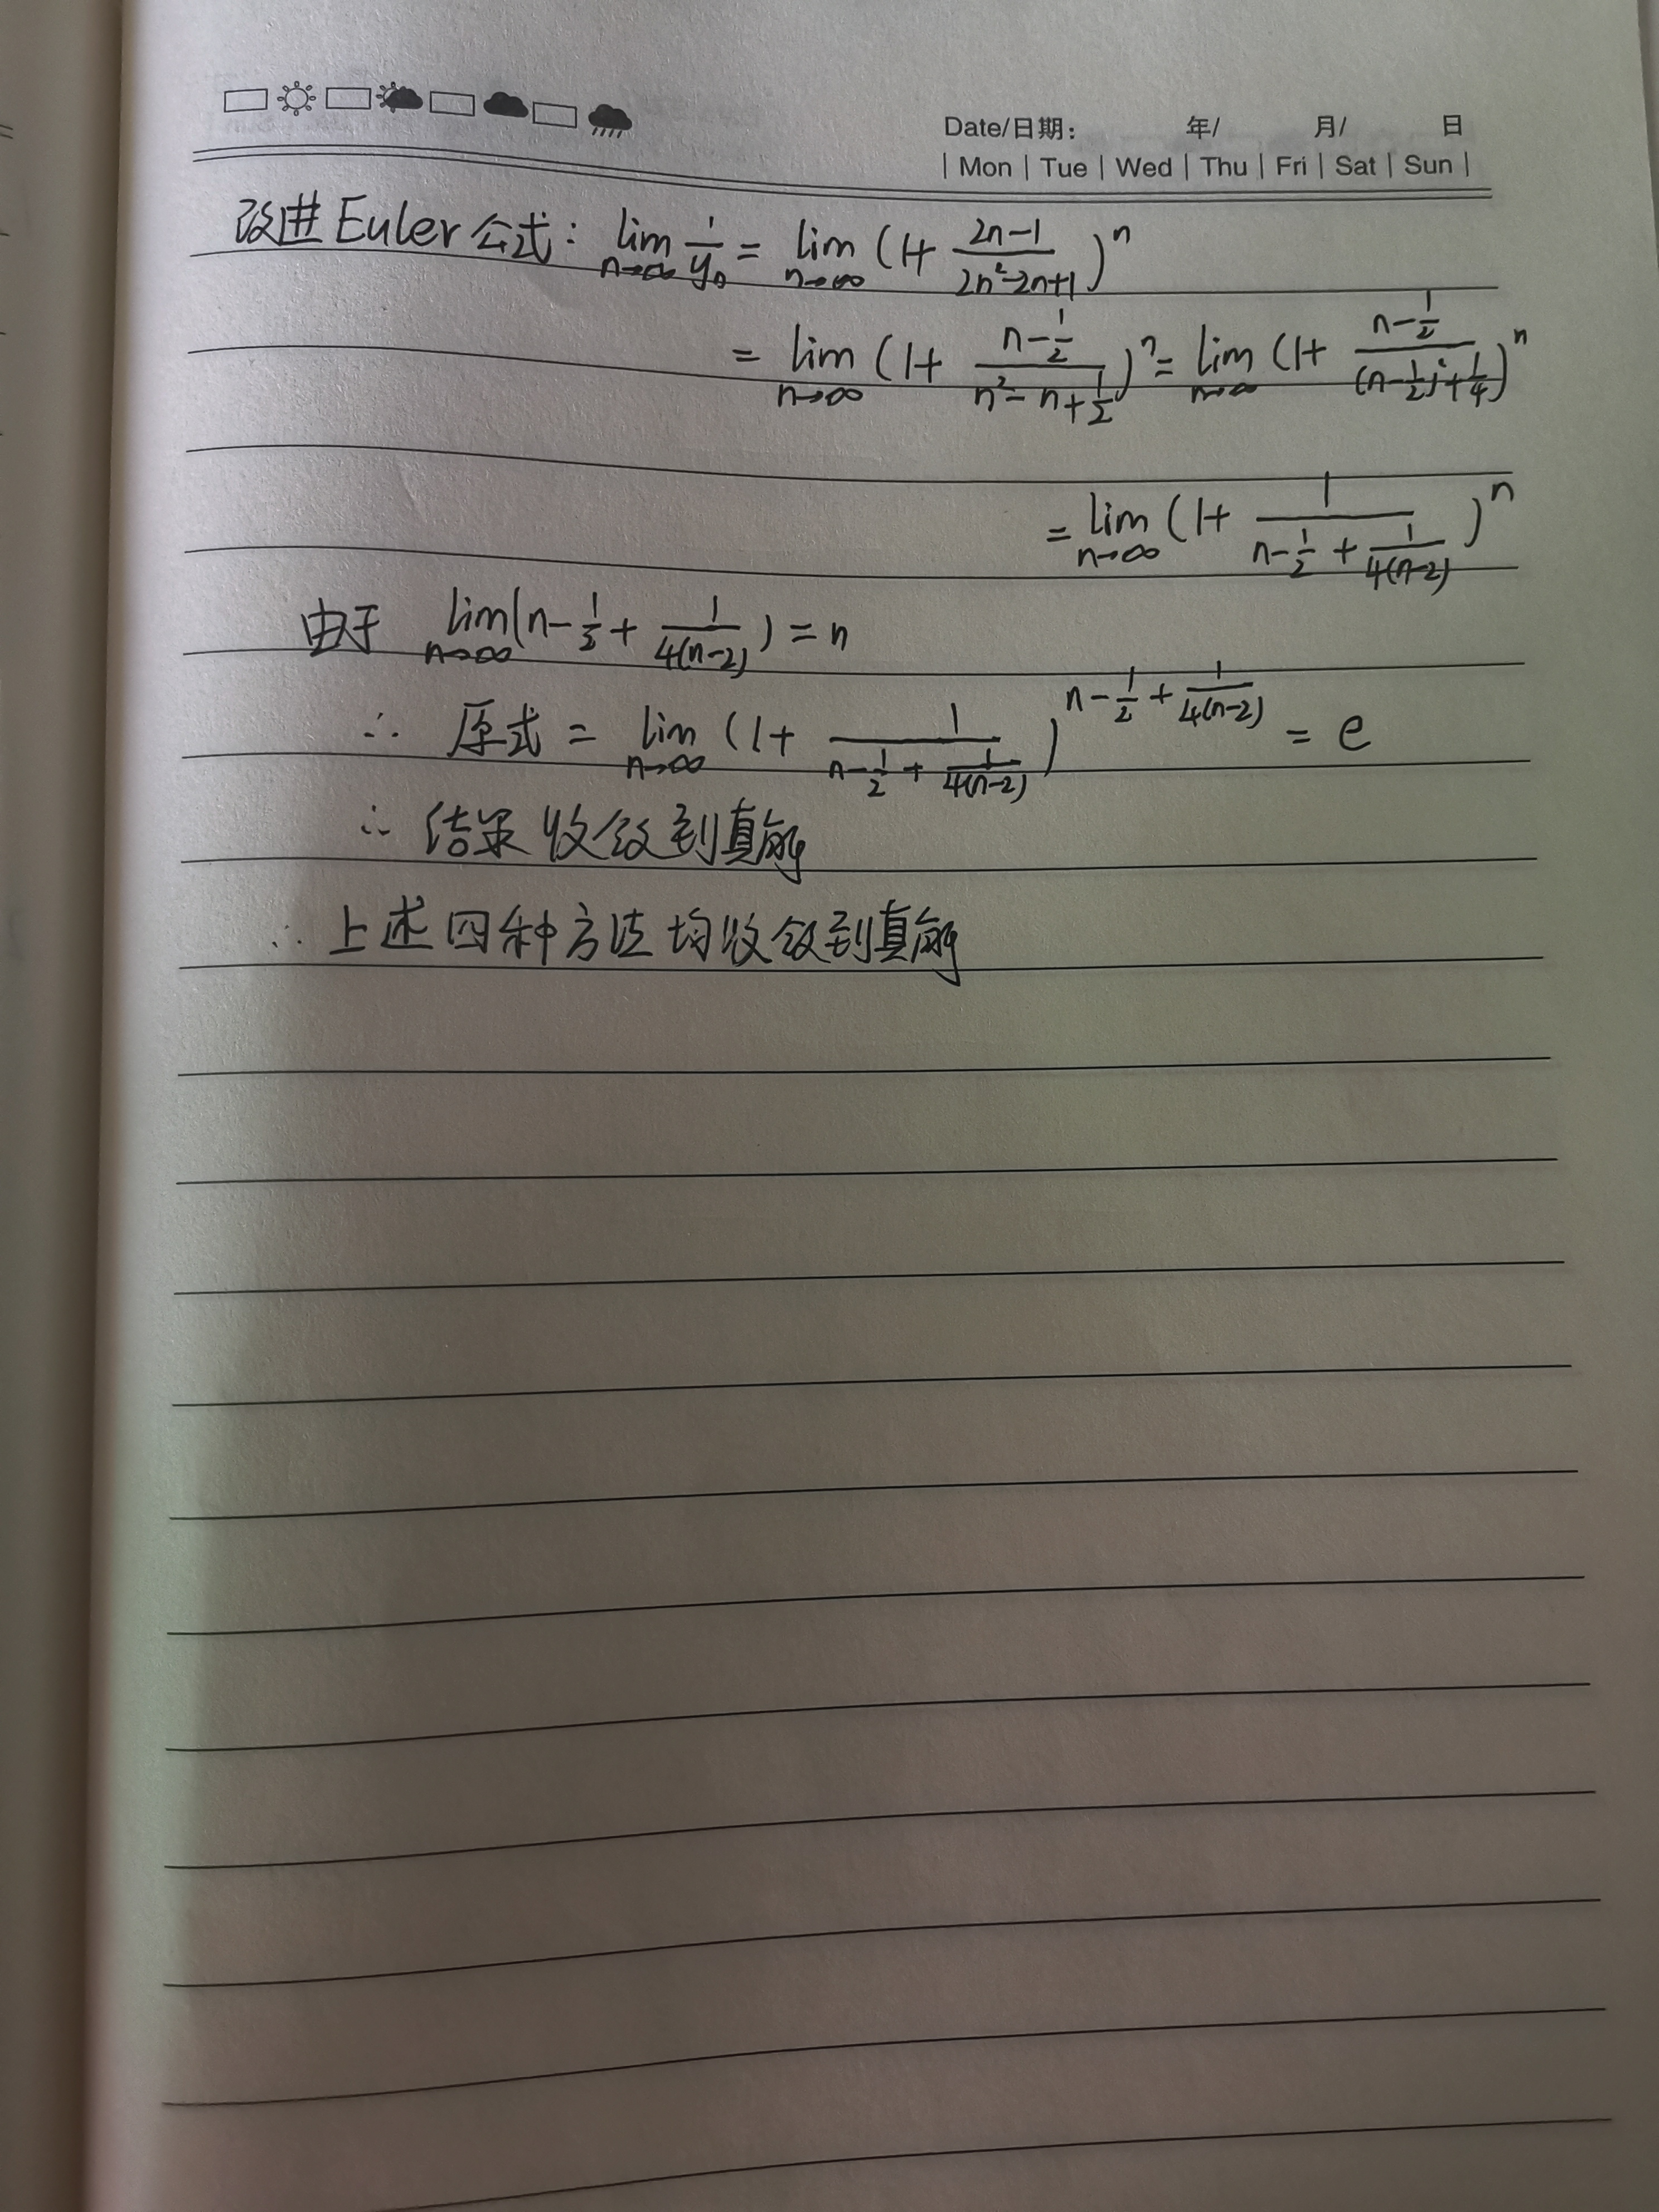 Date/日期: 年/ 月/ 日
| Mon | Tue | Wed | Thu | Fri | Sat | Sun |
改进Euler公式: lim_{n→∞} 1/y_n = lim_{n→∞} (1+ (2n-1)/(2n²-2n+1))^n
= lim_{n→∞} (1+ (n-1/2)/(n²-n+1/2))^n = lim_{n→∞} (1+ (n-1/2)/((n-1/2)²+1/4))^n
= lim_{n→∞} (1+ 1/(n-1/2+1/(4(n-2))))^n
由于 lim_{n→∞} (n-1/2+1/(4(n-2))) = n
∴ 原式 = lim_{n→∞} (1+ 1/(n-1/2+1/(4(n-2))))^{n-1/2+1/(4(n-2))} = e
∴ 结果收敛到真解
∴ 上述四种方法均收敛到真解